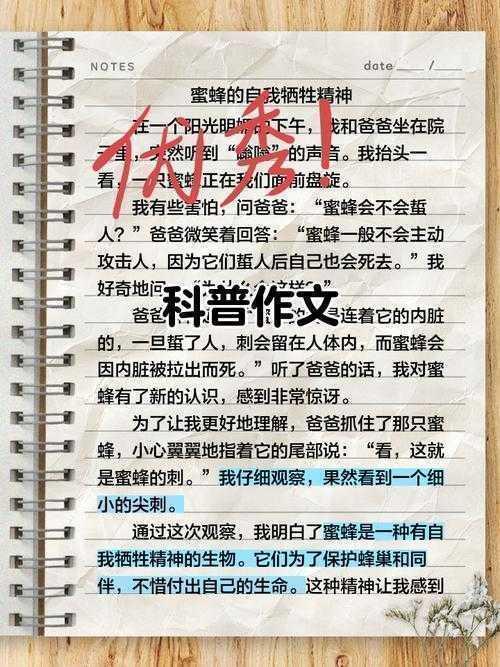 NOTES date ___ / ___
蜜蜂的自我牺牲精神
优秀!
在一个阳光明媚的下午，我和爸爸坐在院
子里，突然听到“嗡嗡”的声音。我抬头一
看，一只蜜蜂正在我们面前盘旋。
我有些害怕，问爸爸：“蜜蜂会不会蜇
人？”爸爸微笑着回答：“蜜蜂一般不会主动
攻击人，因为它们蜇人后自己也会死去。”我
好奇地问
科普作文
爸爸 是连着它的内脏
的，一旦蜇了人，刺会留在人体内，而蜜蜂会
因内脏被拉出而死。”听了爸爸的话，我对蜜
蜂有了新的认识，感到非常惊讶。
为了让我更好地理解，爸爸抓住了那只蜜
蜂，小心翼翼地指着它的尾部说：“看，这就
是蜜蜂的刺。”我仔细观察，果然看到一个细
小的尖刺。
通过这次观察，我明白了蜜蜂是一种有自
我牺牲精神的生物。它们为了保护蜂巢和同
伴，不惜付出自己的生命。这种精神让我感到